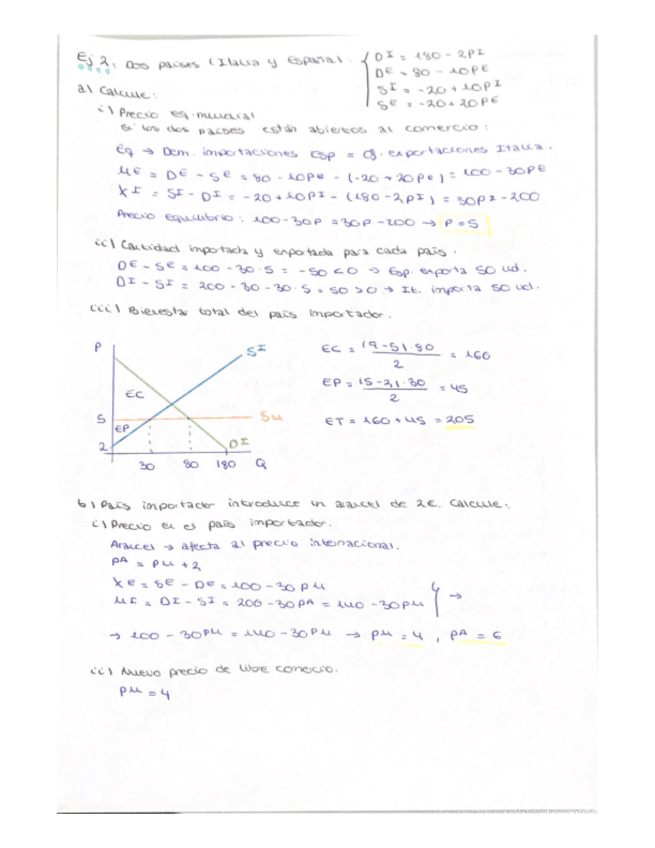 Ej 2: Dos países (Italia y España).
DI = 180 - 2PI
DE = 80 - 10PE
SI = -20 + 10PI
SE = -20 + 20PE
a) Calcule:
i) Precio eq. mundial
Si los dos países están abiertos al comercio:
Eq → Dem. importaciones Esp = Of. exportaciones Italia.
ME = DE - SE = 80 - 10PE - (-20 + 20PE) = 100 - 30PE
XI = SI - DI = -20 + 10PI - (180 - 2PI) = 30PI - 200
Precio equilibrio: 100 - 30P = 30P - 200 → P = 5
ii) Cantidad importada y exportada para cada país.
DE - SE = 100 - 30·5 = -50 < 0 → Esp. exporta 50 ud.
DI - SI = 200 - 30 - 30·5 = 50 > 0 → It. importa 50 ud.
iii) Bienestar total del país importador.
P
SI
EC
5
SM
EP
2
DI
30 80 180 Q
EC = (9-5)·80 / 2 = 160
EP = (5-2)·30 / 2 = 45
ET = 160 + 45 = 205
b) País importador introduce un arancel de 2€. Calcule:
i) Precio en el país importador.
Arancel → afecta al precio internacional.
PA = PM + 2
XE = SE - DE = 100 - 30PM
MI = DI - SI = 200 - 30PA = 140 - 30PM } →
→ 100 - 30PM = 140 - 30PM → PM = 4, PA = 6
ii) Nuevo precio de libre comercio.
PM = 4